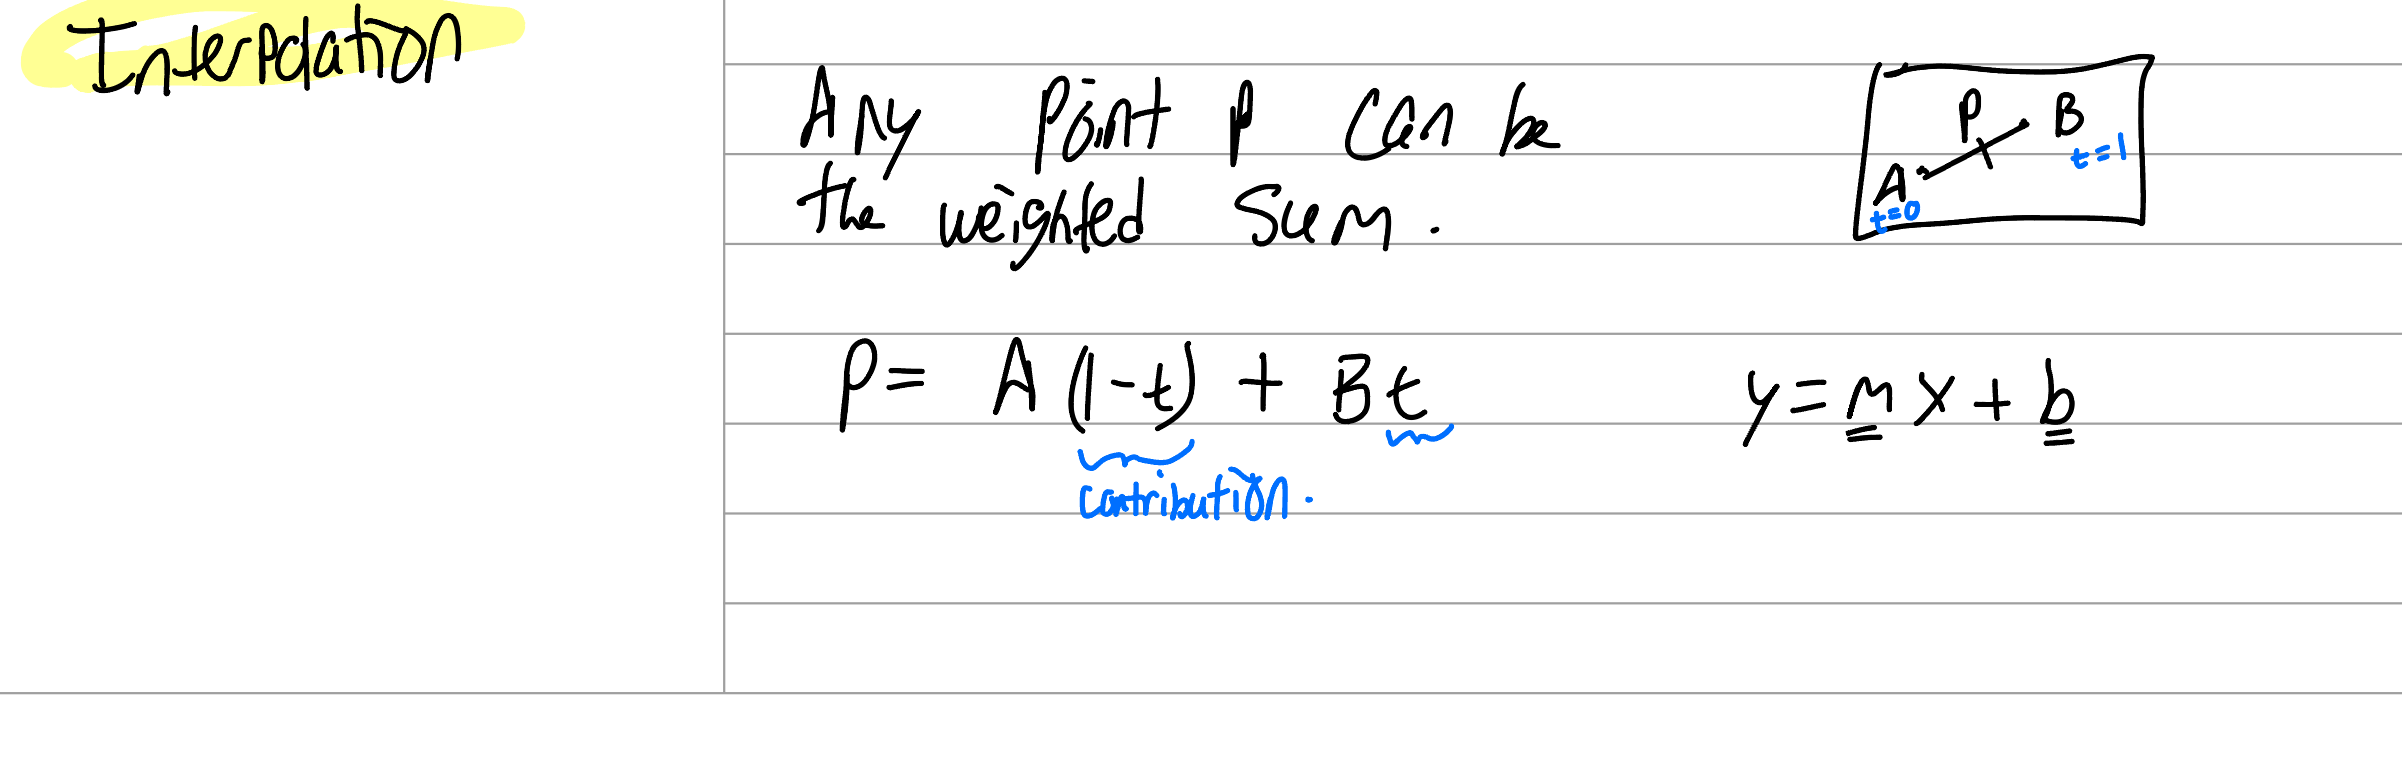 Interpolation
Any Point P can be
the weighted sum.
P
B
t=1
A
t=0
P = A(1-t) + Bt
y = mx + b
contribution.